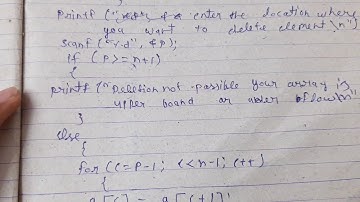 printf (" enter the location where
you want to delete element \n")
scanf ("%d", &p);
if (p >= n+1)
{
printf ("Deletion not possible your array is
upper bound or under flow \n")
}
else
{
for (c = p-1; c < n-1; c++)
{
a[c] = a[c+1];